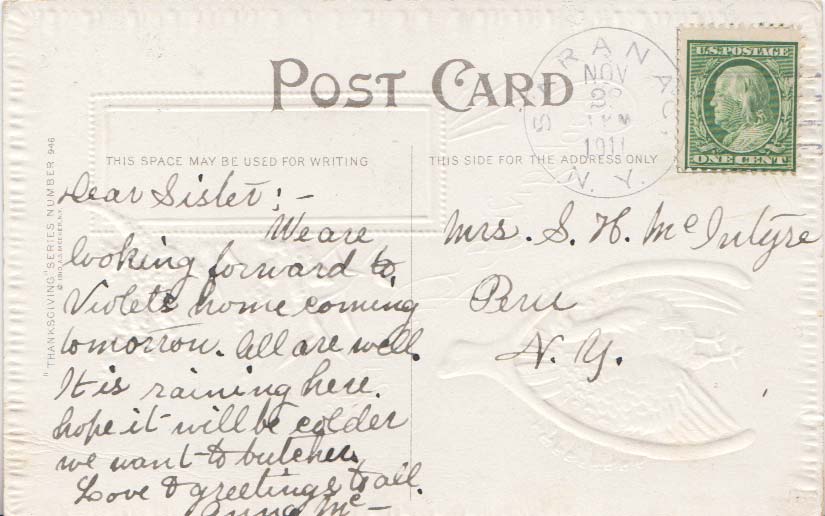 POST CARD
THIS SPACE MAY BE USED FOR WRITING
THIS SIDE FOR THE ADDRESS ONLY
"THANKSGIVING" SERIES NUMBER 946
SARANAC, N.Y.
NOV
1911
U.S. POSTAGE
ONE CENT
Dear Sister:-
We are
looking forward to
Violets home coming
tomorrow. All are well.
It is raining here.
hope it will be colder
we want to butcher.
Love & greetings to all.
Anna Mc-
Mrs. S. H. McIntyre
Peru
N. Y.